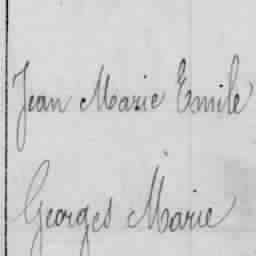 Jean Marie Emile
Georges Marie